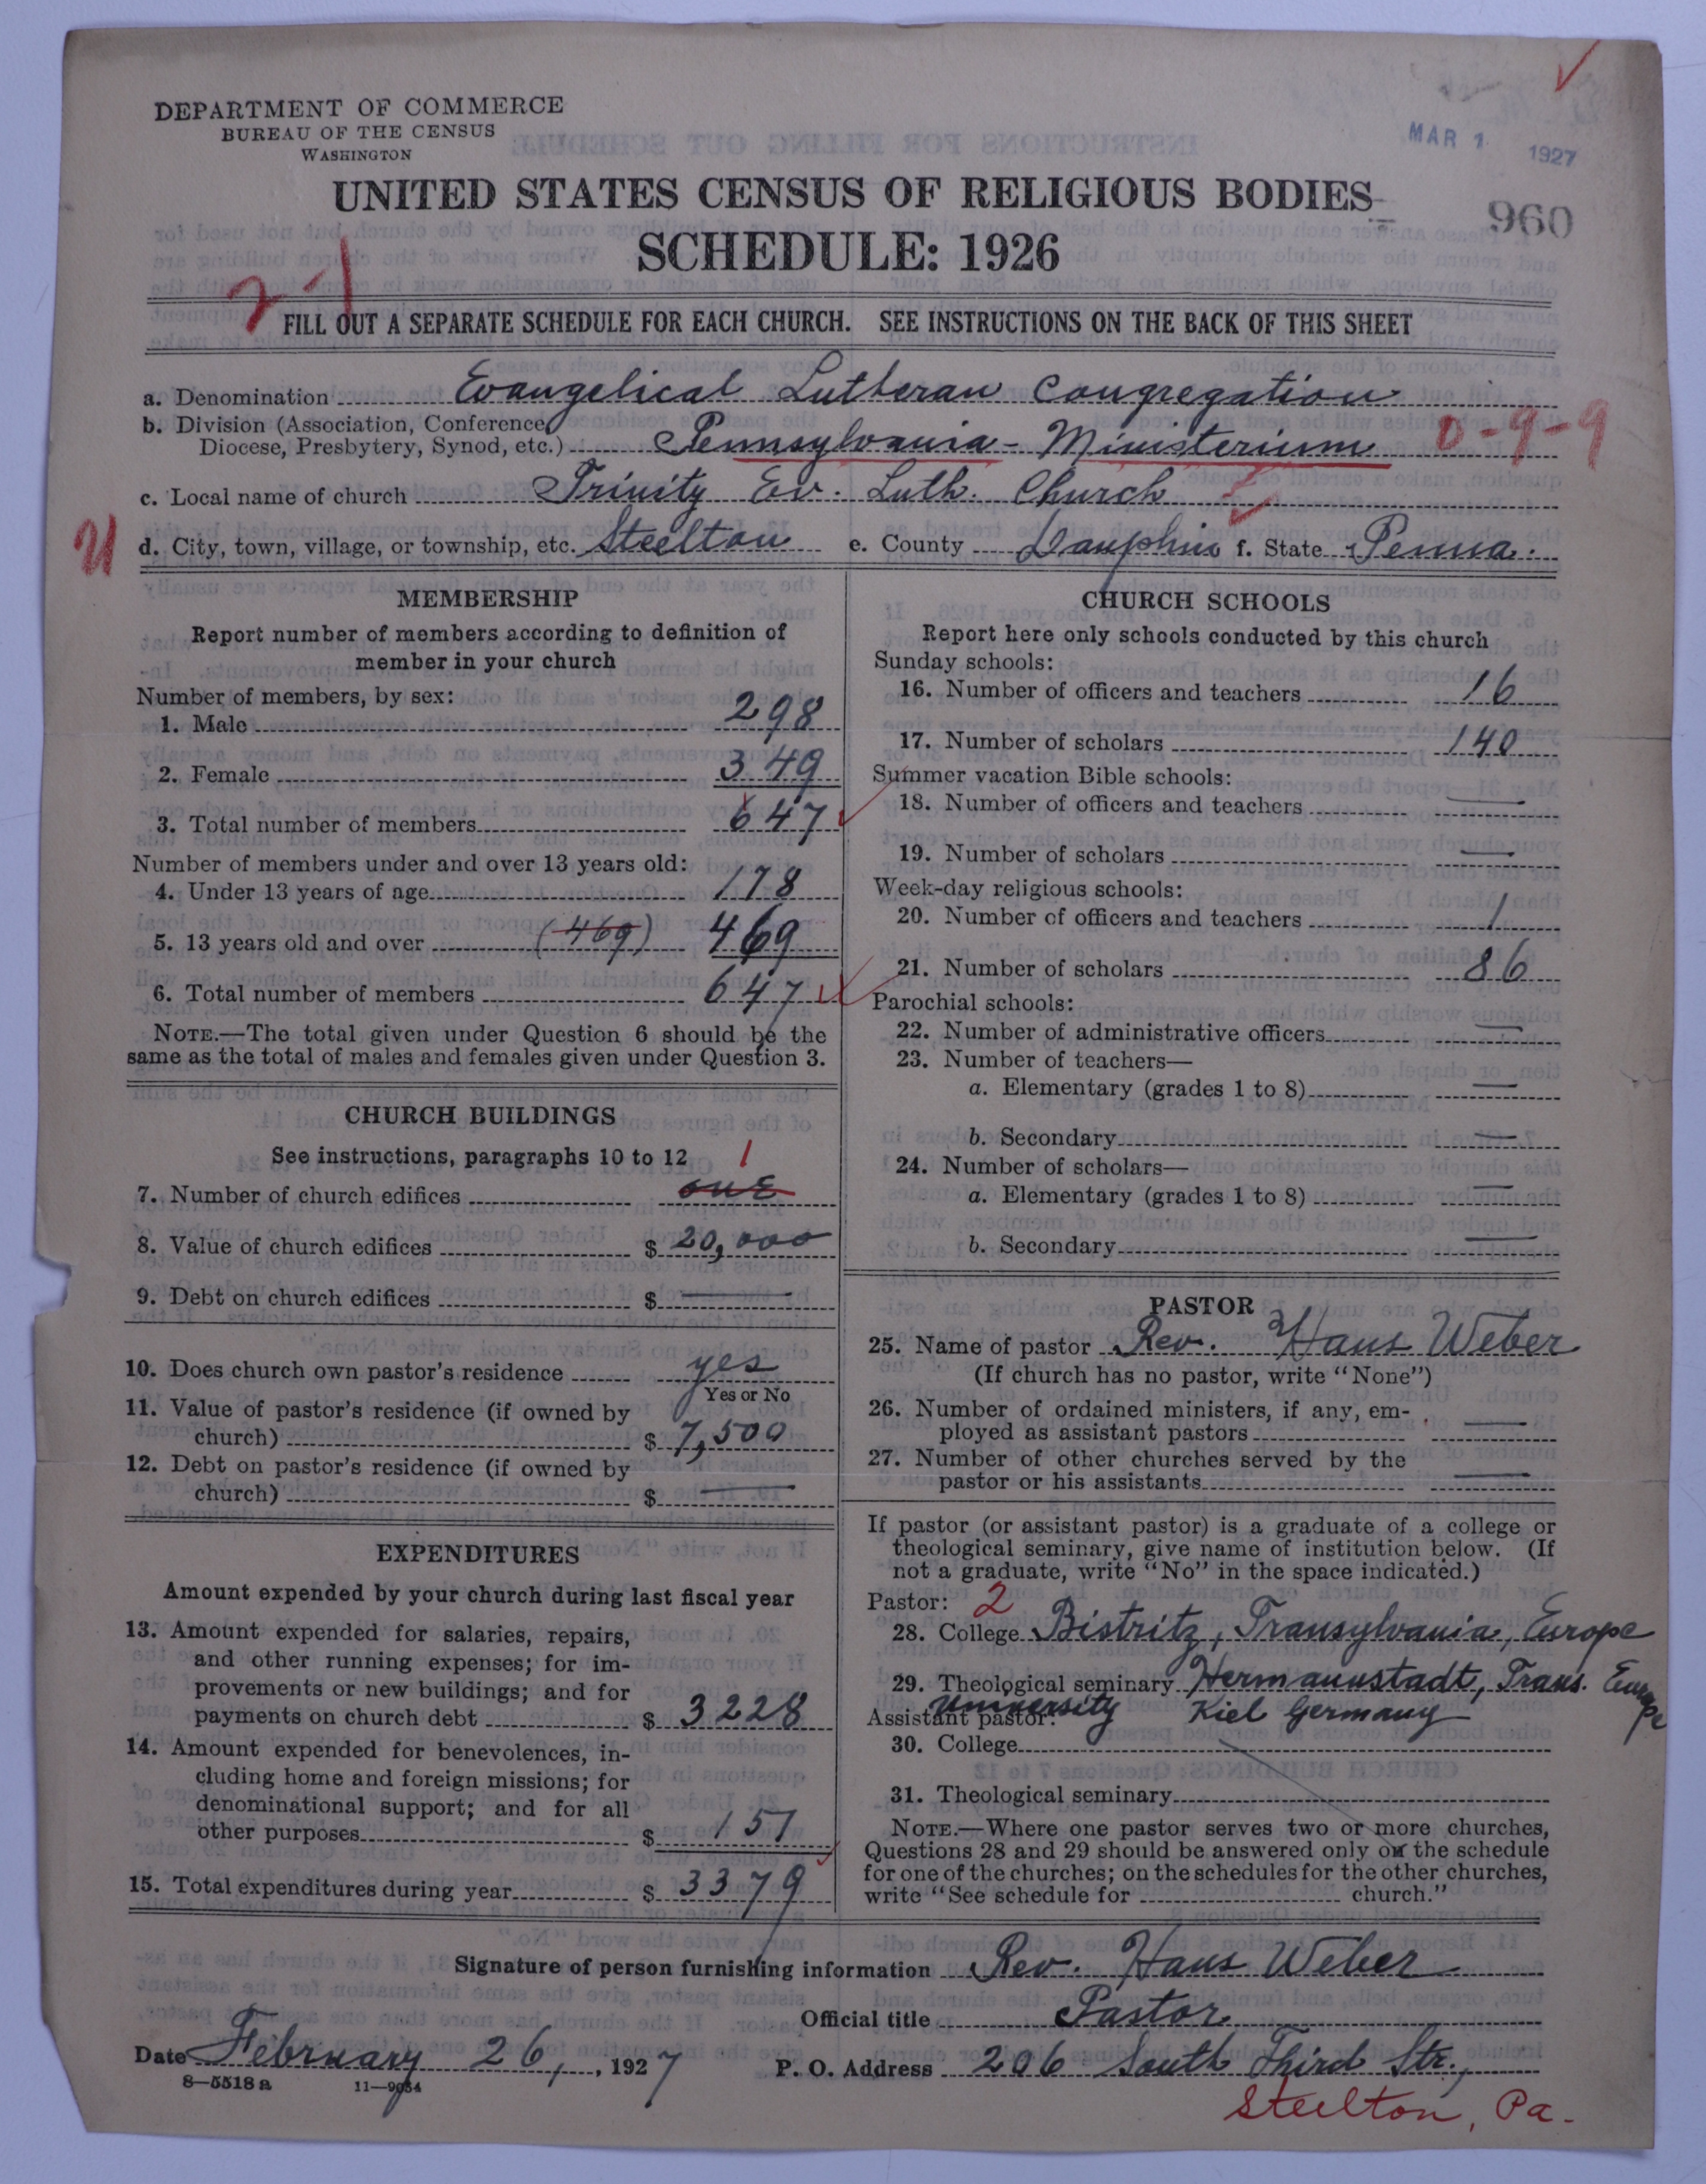 DEPARTMENT OF COMMERCE
BUREAU OF THE CENSUS
WASHINGTON
MAR 1 1927
UNITED STATES CENSUS OF RELIGIOUS BODIES
960
SCHEDULE: 1926
FILL OUT A SEPARATE SCHEDULE FOR EACH CHURCH. SEE INSTRUCTIONS ON THE BACK OF THIS SHEET
a. Denomination Evangelical Lutheran Congregation
b. Division (Association, Conference
Diocese, Presbytery, Synod, etc.) Pennsylvania - Ministerium 0-9-9
c. Local name of church Trinity Ev. Luth. Church
d. City, town, village, or township, etc. Steelton e. County Dauphin f. State Penna.
MEMBERSHIP
Report number of members according to definition of
member in your church
Number of members, by sex:
1. Male 298
2. Female 349
3. Total number of members 647
Number of members under and over 13 years old:
4. Under 13 years of age 178
5. 13 years old and over (469) 469
6. Total number of members 647
NOTE.—The total given under Question 6 should be the
same as the total of males and females given under Question 3.
CHURCH BUILDINGS
See instructions, paragraphs 10 to 12 1
7. Number of church edifices one
8. Value of church edifices $ 20,000
9. Debt on church edifices $ —
10. Does church own pastor's residence yes
Yes or No
11. Value of pastor's residence (if owned by
church) $ 7,500
12. Debt on pastor's residence (if owned by
church) $ —
EXPENDITURES
Amount expended by your church during last fiscal year
13. Amount expended for salaries, repairs,
and other running expenses; for im-
provements or new buildings; and for
payments on church debt $ 3228
14. Amount expended for benevolences, in-
cluding home and foreign missions; for
denominational support; and for all
other purposes $ 151
15. Total expenditures during year $ 3379
CHURCH SCHOOLS
Report here only schools conducted by this church
Sunday schools:
16. Number of officers and teachers 16
17. Number of scholars 140
Summer vacation Bible schools:
18. Number of officers and teachers —
19. Number of scholars —
Week-day religious schools:
20. Number of officers and teachers 1
21. Number of scholars 86
Parochial schools:
22. Number of administrative officers —
23. Number of teachers—
a. Elementary (grades 1 to 8) —
b. Secondary —
24. Number of scholars—
a. Elementary (grades 1 to 8) —
b. Secondary —
PASTOR
25. Name of pastor Rev. Hans Weber
(If church has no pastor, write "None")
26. Number of ordained ministers, if any, em-
ployed as assistant pastors —
27. Number of other churches served by the
pastor or his assistants —
If pastor (or assistant pastor) is a graduate of a college or
theological seminary, give name of institution below. (If
not a graduate, write "No" in the space indicated.)
Pastor: 2
28. College Bistritz, Transylvania, Europe
29. Theological seminary Hermannstadt, Trans. Europe
Assistant pastor: University Kiel Germany
30. College
31. Theological seminary
NOTE.—Where one pastor serves two or more churches,
Questions 28 and 29 should be answered only on the schedule
for one of the churches; on the schedules for the other churches,
write "See schedule for church."
Signature of person furnishing information Rev. Hans Weber
Official title Pastor
Date February 26, 1927 P. O. Address 206 South Third Str.,
8—5518a 11—9034
Steelton, Pa.